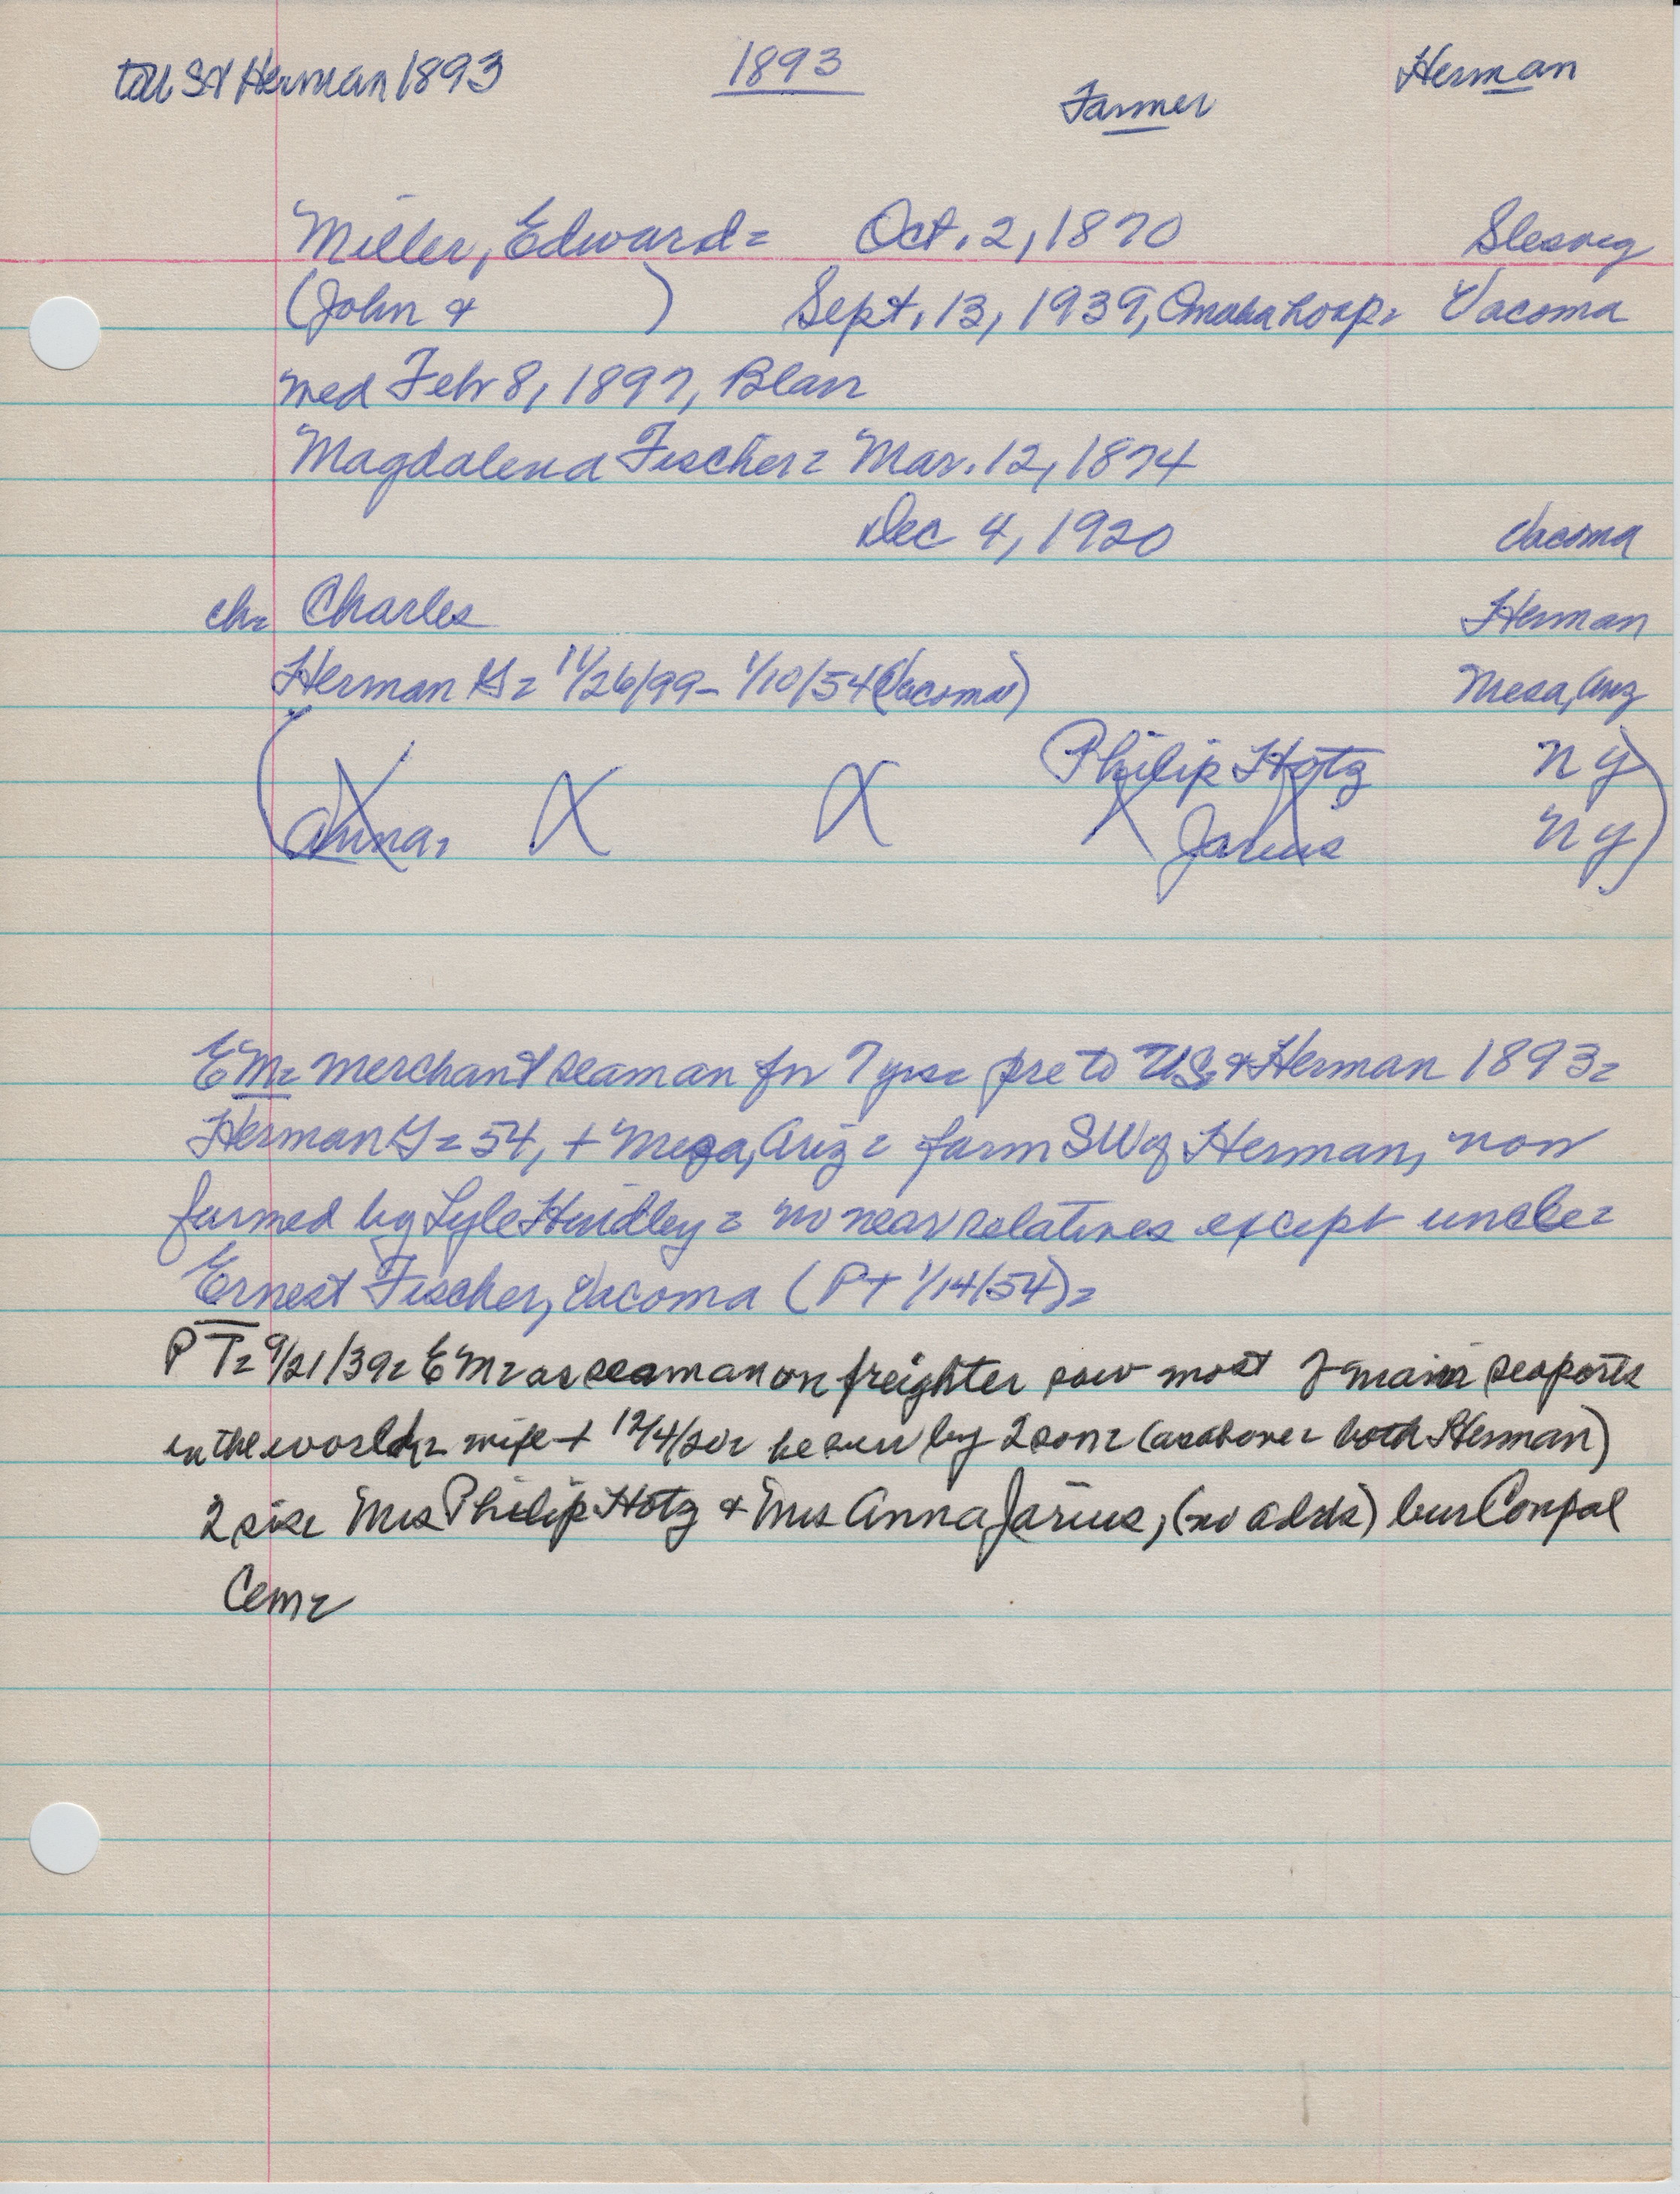 to US & Herman 1893 1893 Farmer Herman
Miller, Edward= Oct. 2, 1870 Slesvig
(John & ) Sept. 13, 1939, Omaha hosp= Vacoma
med Feb 8, 1897, Blair
Magdalena Fischer= Mar. 12, 1874
Dec 4, 1920 Vacoma
ch= Charles Herman
Herman G= 11/26/99- 1/10/54 (Vacoma) Mesa, Ariz
( Philip Hotz NY
Anna= Jarius NY)
EM= merchant seaman for 7 yrs= pre to US & Herman 1893=
Herman G= 54, + Mesa, Ariz= farm SW of Herman, now
farmed by Lyle Hindley= no near relatives except uncle=
Ernest Fischer, Vacoma (PT 1/14/54)=
PT= 9/21/39= EM= as seaman on freighter saw most of main seaports
in the world= wife + 12/4/20= he surv by 2 sons= (as above= both Herman)
2 sis= Mrs Philip Hotz & Mrs Anna Jarius, (no adds) bur
Cem=